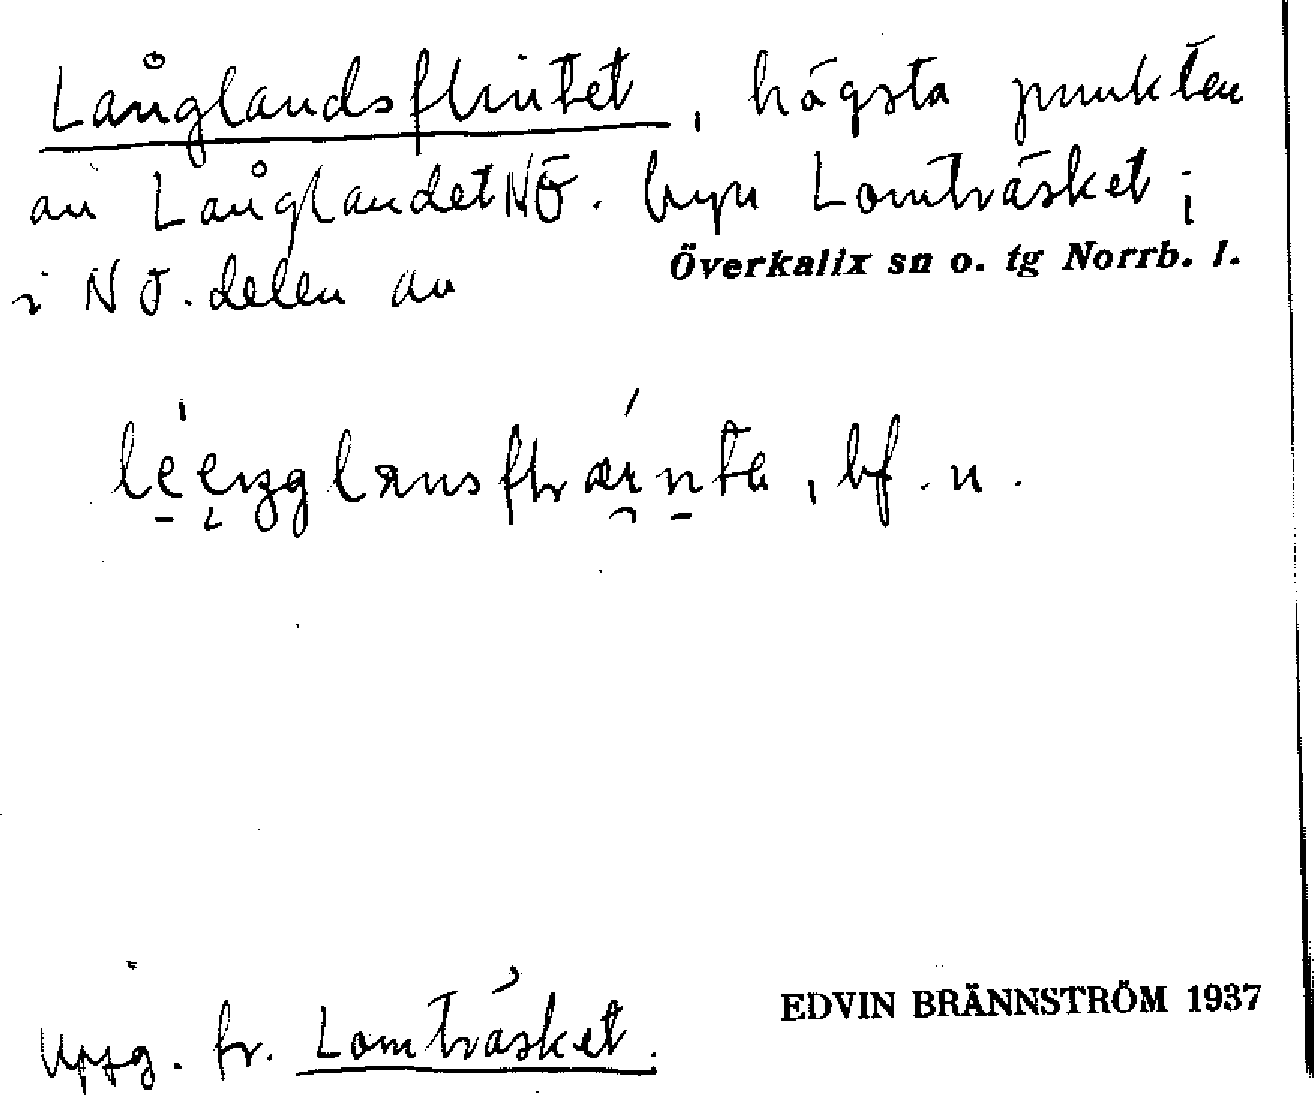 Långlandsflintet, högsta punkten
av Långlandet NÖ. byn Lomträsket;
i NÖ. delen av Överkalix sn o. tg Norrb. l.
bf. n.
Uppg. fr. Lomträsket.
EDVIN BRÄNNSTRÖM 1937